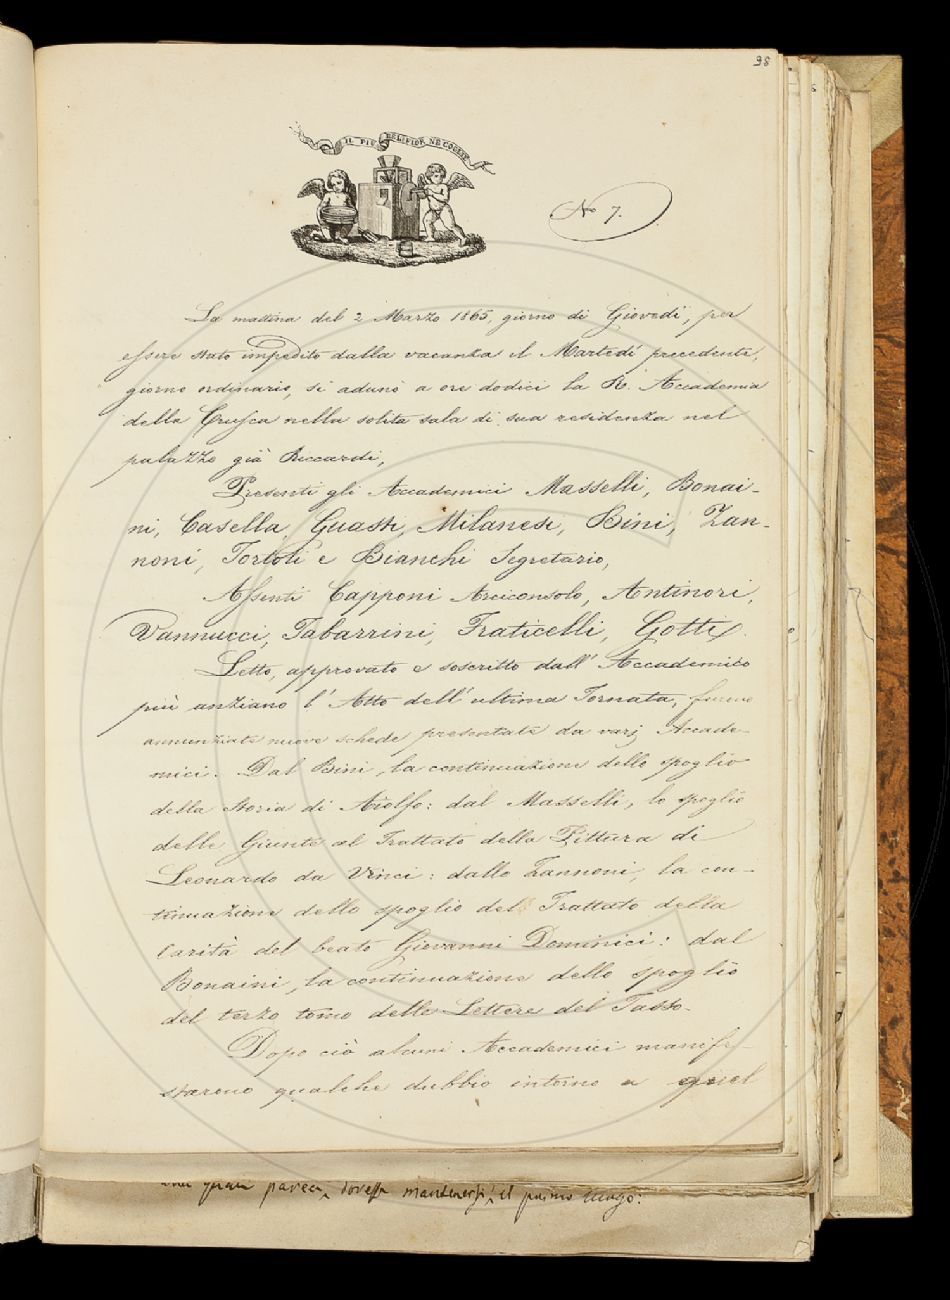 98
IL PIÙ BEL FIOR NE COGLIE
N° 7.
La mattina del 2 Marzo 1865, giorno di Giovedì, per
essere stato impedito dalla vacanza il Martedì precedente,
giorno ordinario, si adunò a ore dodici la R. Accademia
della Crusca nella solita sala di sua residenza nel
palazzo già Riccardi,
Presenti gli Accademici Masselli, Bonai-
ni, Casella, Guasti, Milanesi, Bini, Zan-
noni, Tortoli e Bianchi Segretario,
Assenti Capponi Arciconsolo, Antinori,
Vannucci, Tabarrini, Fraticelli, Gotti.
Letto, approvato e soscritto dall' Accademico
più anziano l' Atto dell' ultima Tornata, furono
annunziate nuove schede presentate da varj Accade-
mici. Dal Bini, la continuazione dello spoglio
della Storia di Aiolfo: dal Masselli, lo spoglio
delle Giunte al Trattato della Pittura di
Leonardo da Vinci: dallo Zannoni, la con-
tinuazione dello spoglio del Trattato della
Carità del beato Giovanni Dominici: dal
Bonaini, la continuazione dello spoglio
del terzo tomo delle Lettere del Tasso.
Dopo ciò alcuni Accademici manife-
starono qualche dubbio intorno a quel
parea, dovesse mantenersi il primo luogo: